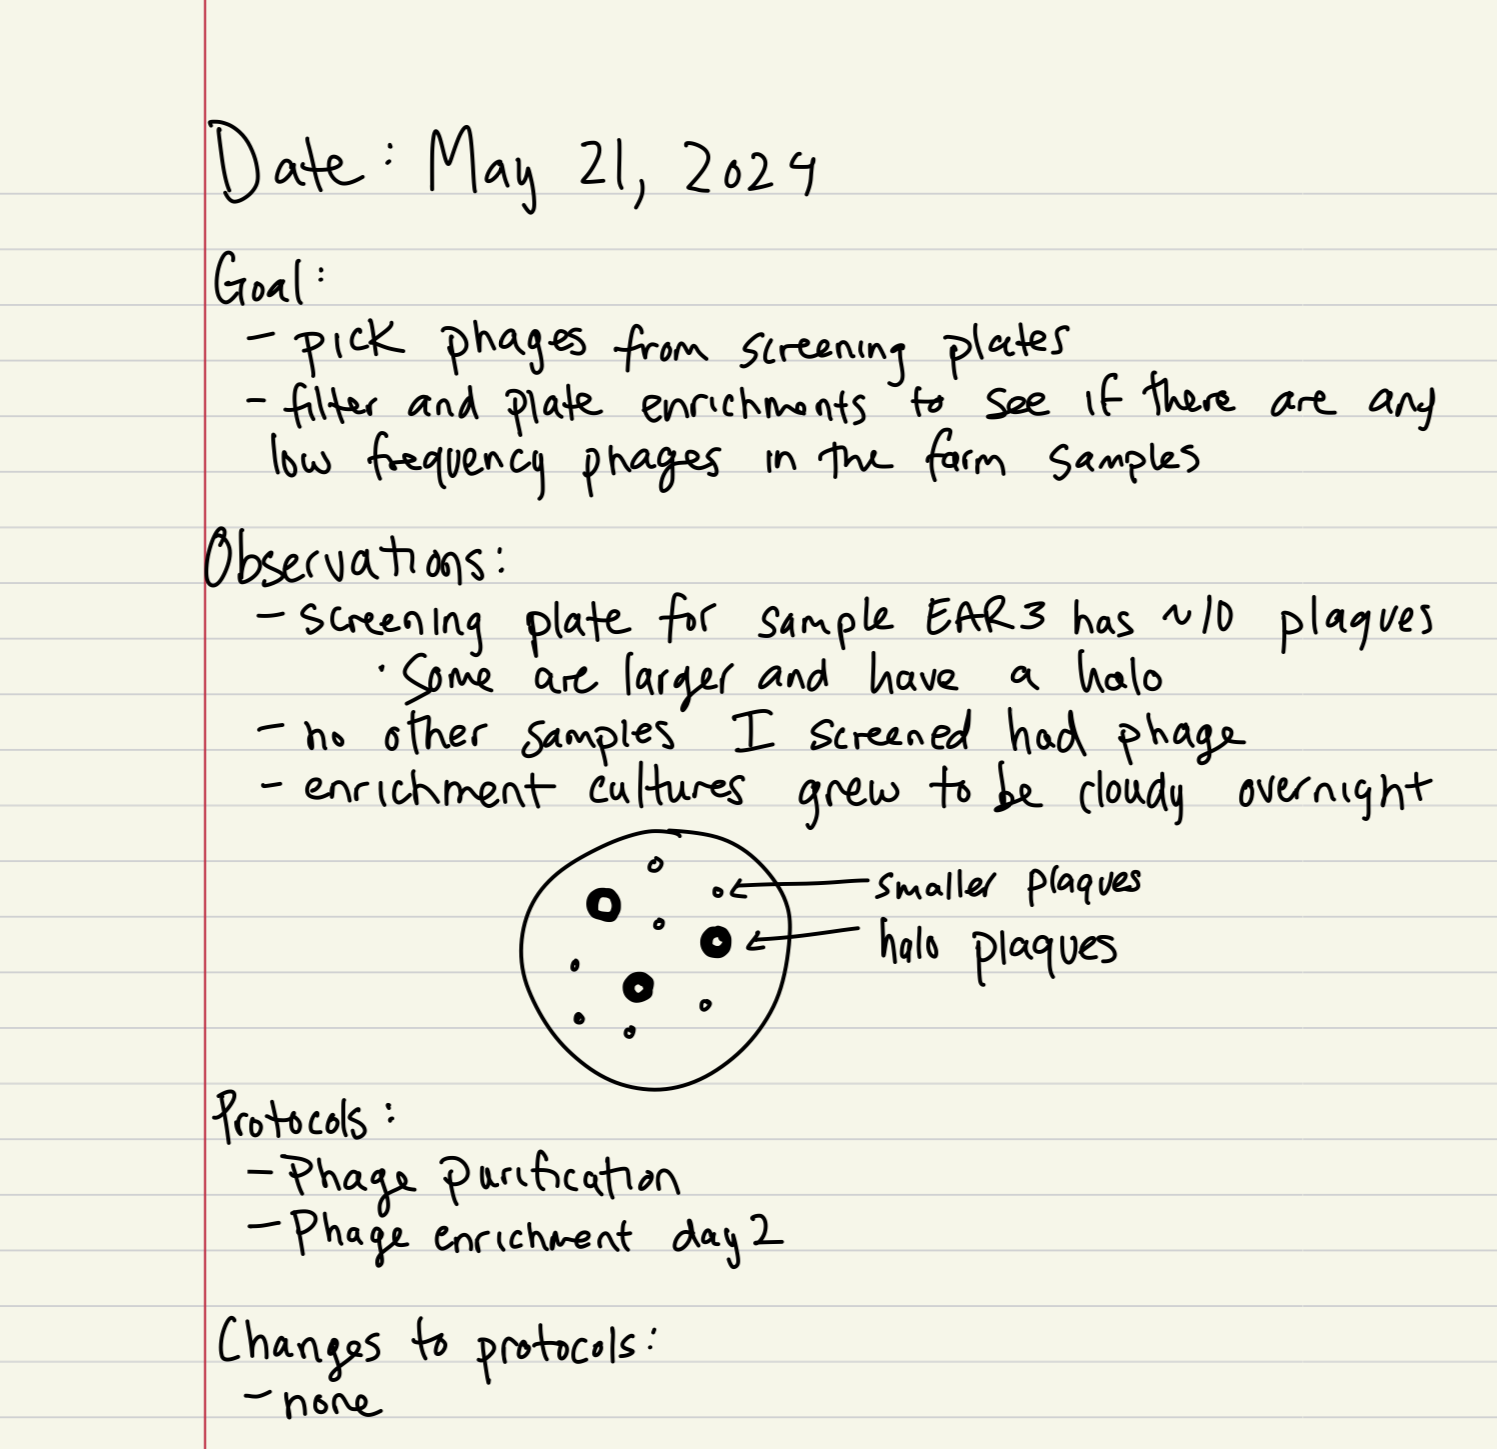 Date: May 21, 2024
Goal:
- pick phages from screening plates
- filter and plate enrichments to see if there are any
low frequency phages in the farm samples
Observations:
- screening plate for sample EAR3 has ~10 plaques
· Some are larger and have a halo
- no other samples I screened had phage
- enrichment cultures grew to be cloudy overnight
smaller plaques
halo plaques
Protocols:
- Phage purification
- Phage enrichment day 2
Changes to protocols:
- none